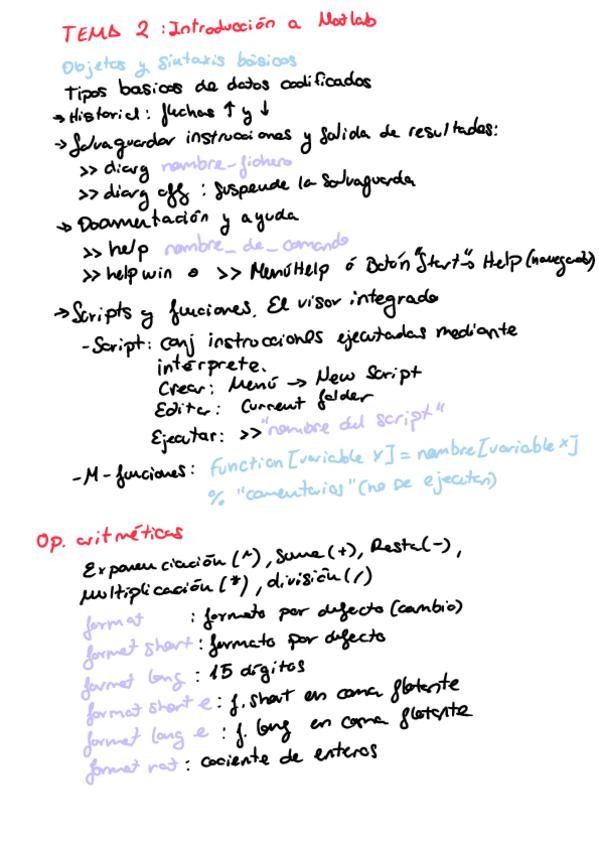 TEMA 2: Introducción a Matlab
Objetos y Sintaxis básicos
Tipos basicos de datos codificados
→ Historial: fluchas ↑ y ↓
→ Salvaguardar instrucciones y salida de resultados:
>> diary nombre-fichero
>> diary off : Suspende la salvaguarda
→ Documentación y ayuda
>> help nombre_de_comando
>> help win o >> MenúHelp ó Botón "Start"→ Help (navegador)
→ Scripts y funciones. El visor integrado
- Script: conj instrucciones ejecutadas mediante
intérprete.
Crear: Menú → New Script
Editar: Current folder
Ejecutar: >> "nombre del script"
- M-funciones: function [variable Y] = nombre [variable X]
% "comentarios" (no se ejecutan)
Op. aritméticas
Exponenciación (^), Suma (+), Resta (-),
Multiplicación (*), división (/)
format : formato por defecto (cambio)
format short : formato por defecto
format long : 15 dígitos
format short e : f. short en coma flotante
format long e : f. long en coma flotante
format rat : cociente de enteros